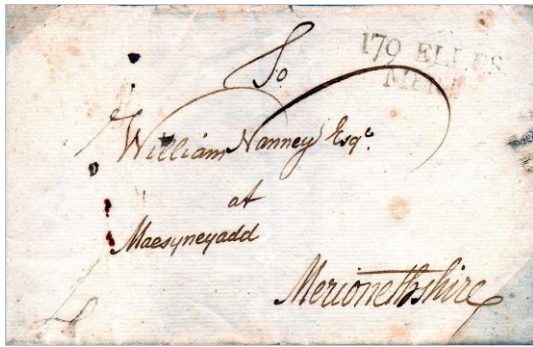 170 ELLES
MERE
To
William Nanney Esqr.
at
Maesyneyadd
Merionethshire